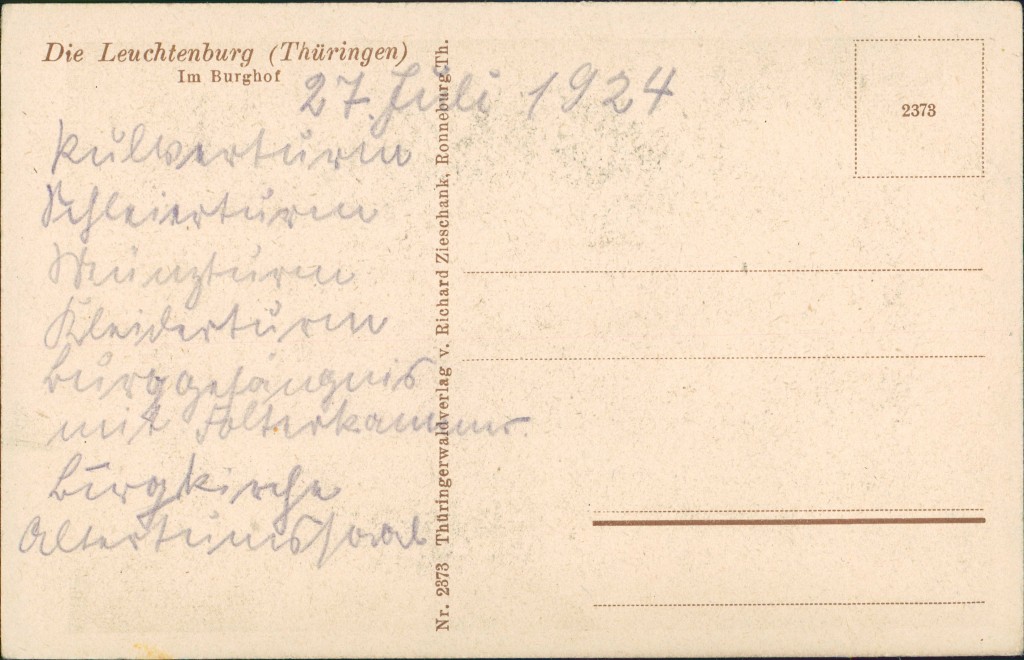 Die Leuchtenburg (Thüringen)
Im Burghof
27. Juli 1924.
Pulverturm
Schleierturm
Münzturm
Kleiderturm
Burggefängnis
mit Folterkammer.
Burgkirche
Altertumssaal
Nr. 2373 Thüringerwaldverlag v. Richard Zieschank, Ronneburg Th.
2373